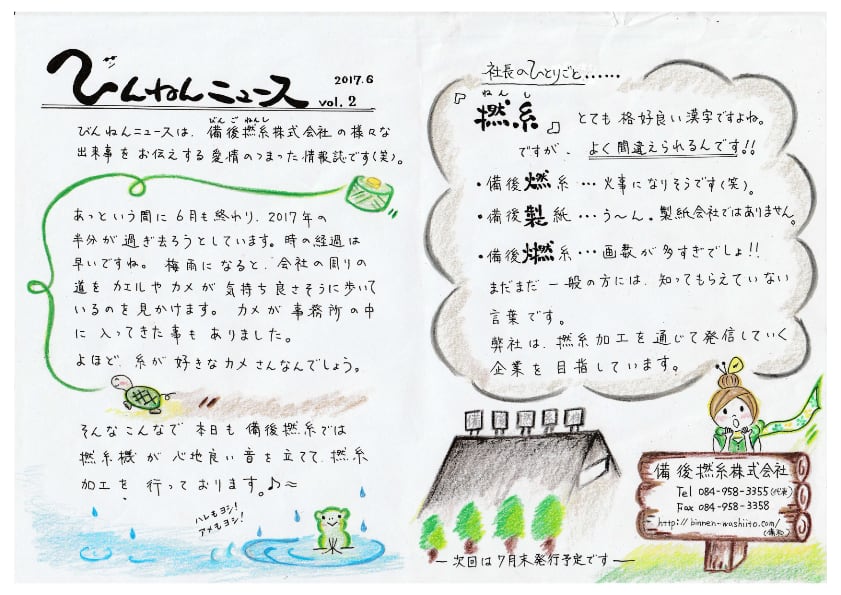 びんねんニュース
2017.6
vol.2
びんごねんし
びんねんニュースは、備後撚糸株式会社の様々な
出来事をお伝えする愛情のつまった情報誌です(笑)。
あっという間に6月も終わり、2017年の
半分が過ぎ去ろうとしています。時の経過は
早いですね。梅雨になると、会社の周りの
道をカエルやカメが気持ち良さそうに歩いて
いるのを見かけます。カメが事務所の中
に入ってきた事もありました。
よほど、糸が好きなカメさんなんでしょう。
そんなこんなで本日も備後撚糸では
撚糸機が心地良い音を立てて、撚糸
加工を行っております。♪
ハレもヨシ!
アメもヨシ!
社長のひとりごと……
ねんし
『撚糸』とても格好良い漢字ですよね。
ですが、よく間違えられるんです!!
・備後燃糸…火事になりそうです(笑)。
・備後製紙…う〜ん。製紙会社ではありません。
・備後糸…画数が多すぎでしょ!!
まだまだ一般の方には、知ってもらえていない
言葉です。
弊社は、撚糸加工を通じて発信していく
企業を目指しています。
備後撚糸株式会社
Tel 084-958-3355(代表)
Fax 084-958-3358
http://binnen-washiito.com/
(備和)
―次回は7月末発行予定です―